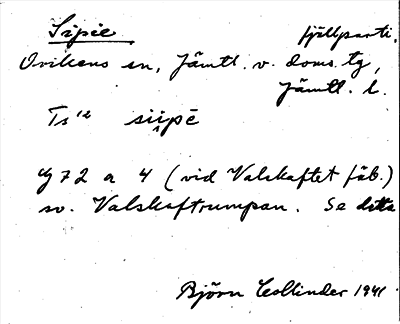 Sipie fjällparti.
Ovikens sn, Jämtl. v. doms. tg,
Jämtl. l.
Ts¹² siipē
Y 72 a 4 (vid Valskaftet fäb.)
sv. Valskaftrumpan. Se detta
Björn Collinder 1941